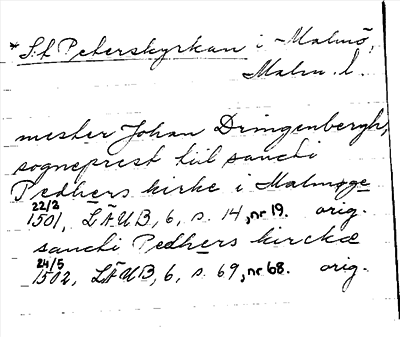 * S:t Peterskyrkan i Malmö,
Malm. l.
mester Johan Dringenbergh,
sogneprest till sancti
Pedhers kirke i Malmøge
22/2 1501, LÄUB, 6, s. 14, nr 19. orig.
sancti Pedhers kirckæ
24/5 1502, LÄUB, 6, s. 69, nr 68. orig.